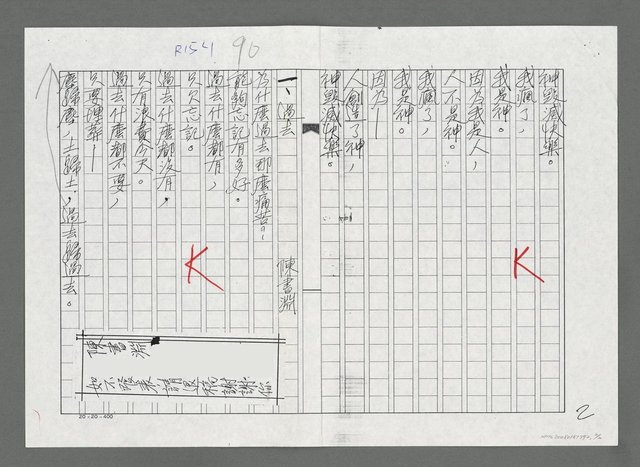 R154
90
神毀滅快樂。
我瘋了，
我是神。
因為我是人，
人不是神。
我瘋了，
我是神。
因為——
人創造了神，
神毀滅快樂。
一、過去
陳書淵
為什麼過去那麼痛苦。
能夠忘記有多好。
過去什麼都有，
只欠忘記。
過去什麼都沒有，
只有浪費今天。
過去什麼都不要，
只要埋葬——
塵歸塵，土歸土，過去歸過去。
K
K
陳書淵
如不發表請退稿謝謝你
20×20=400
2